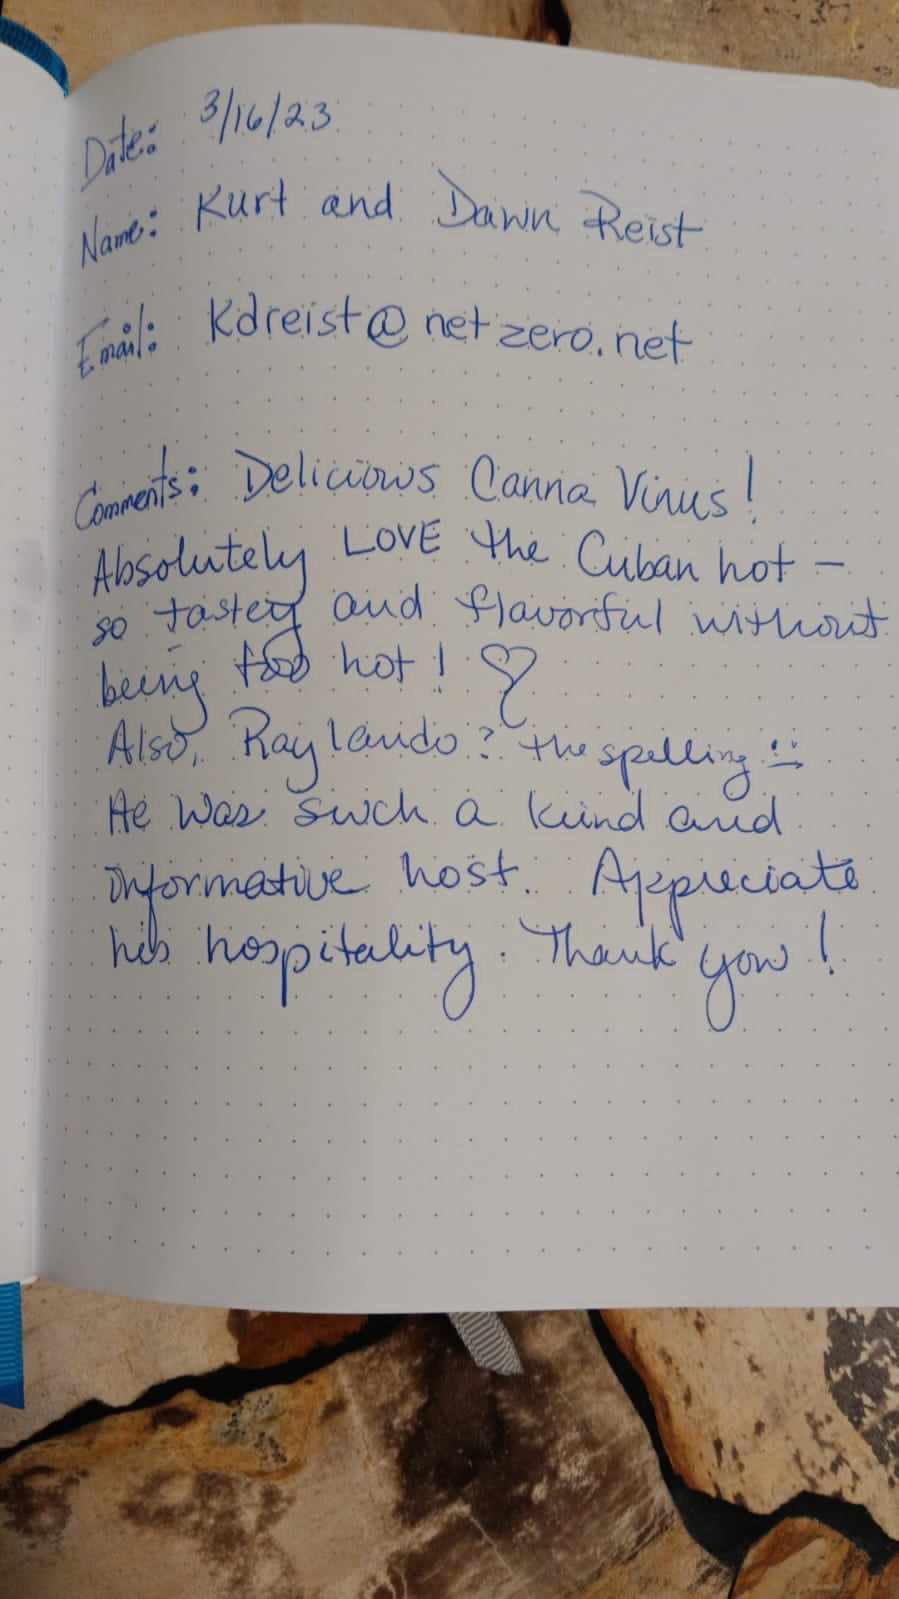 Date: 3/16/23
Name: Kurt and Dawn Reist
Email: Kdreist@netzero.net
Comments: Delicious Canna Vinus!
Absolutely LOVE the Cuban hot -
so tastey and flavorful without
being too hot! ♡
Also, Raylando? the spelling :)
He was such a kind and
informative host. Appreciate
his hospitality. Thank you!